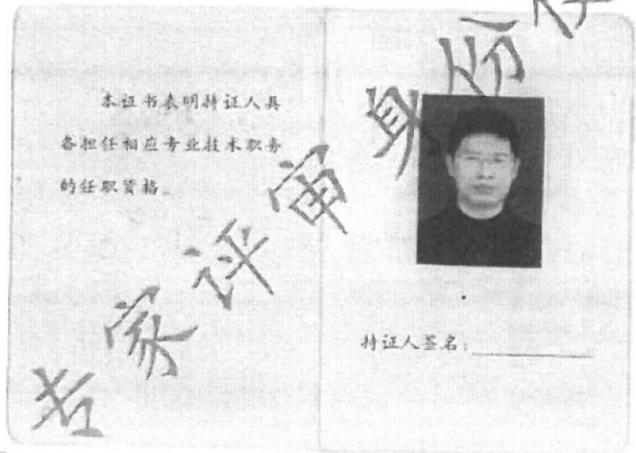 本证书表明持证人具
备担任相应专业技术职务
的任职资格。
持证人签名：
专家评审身份